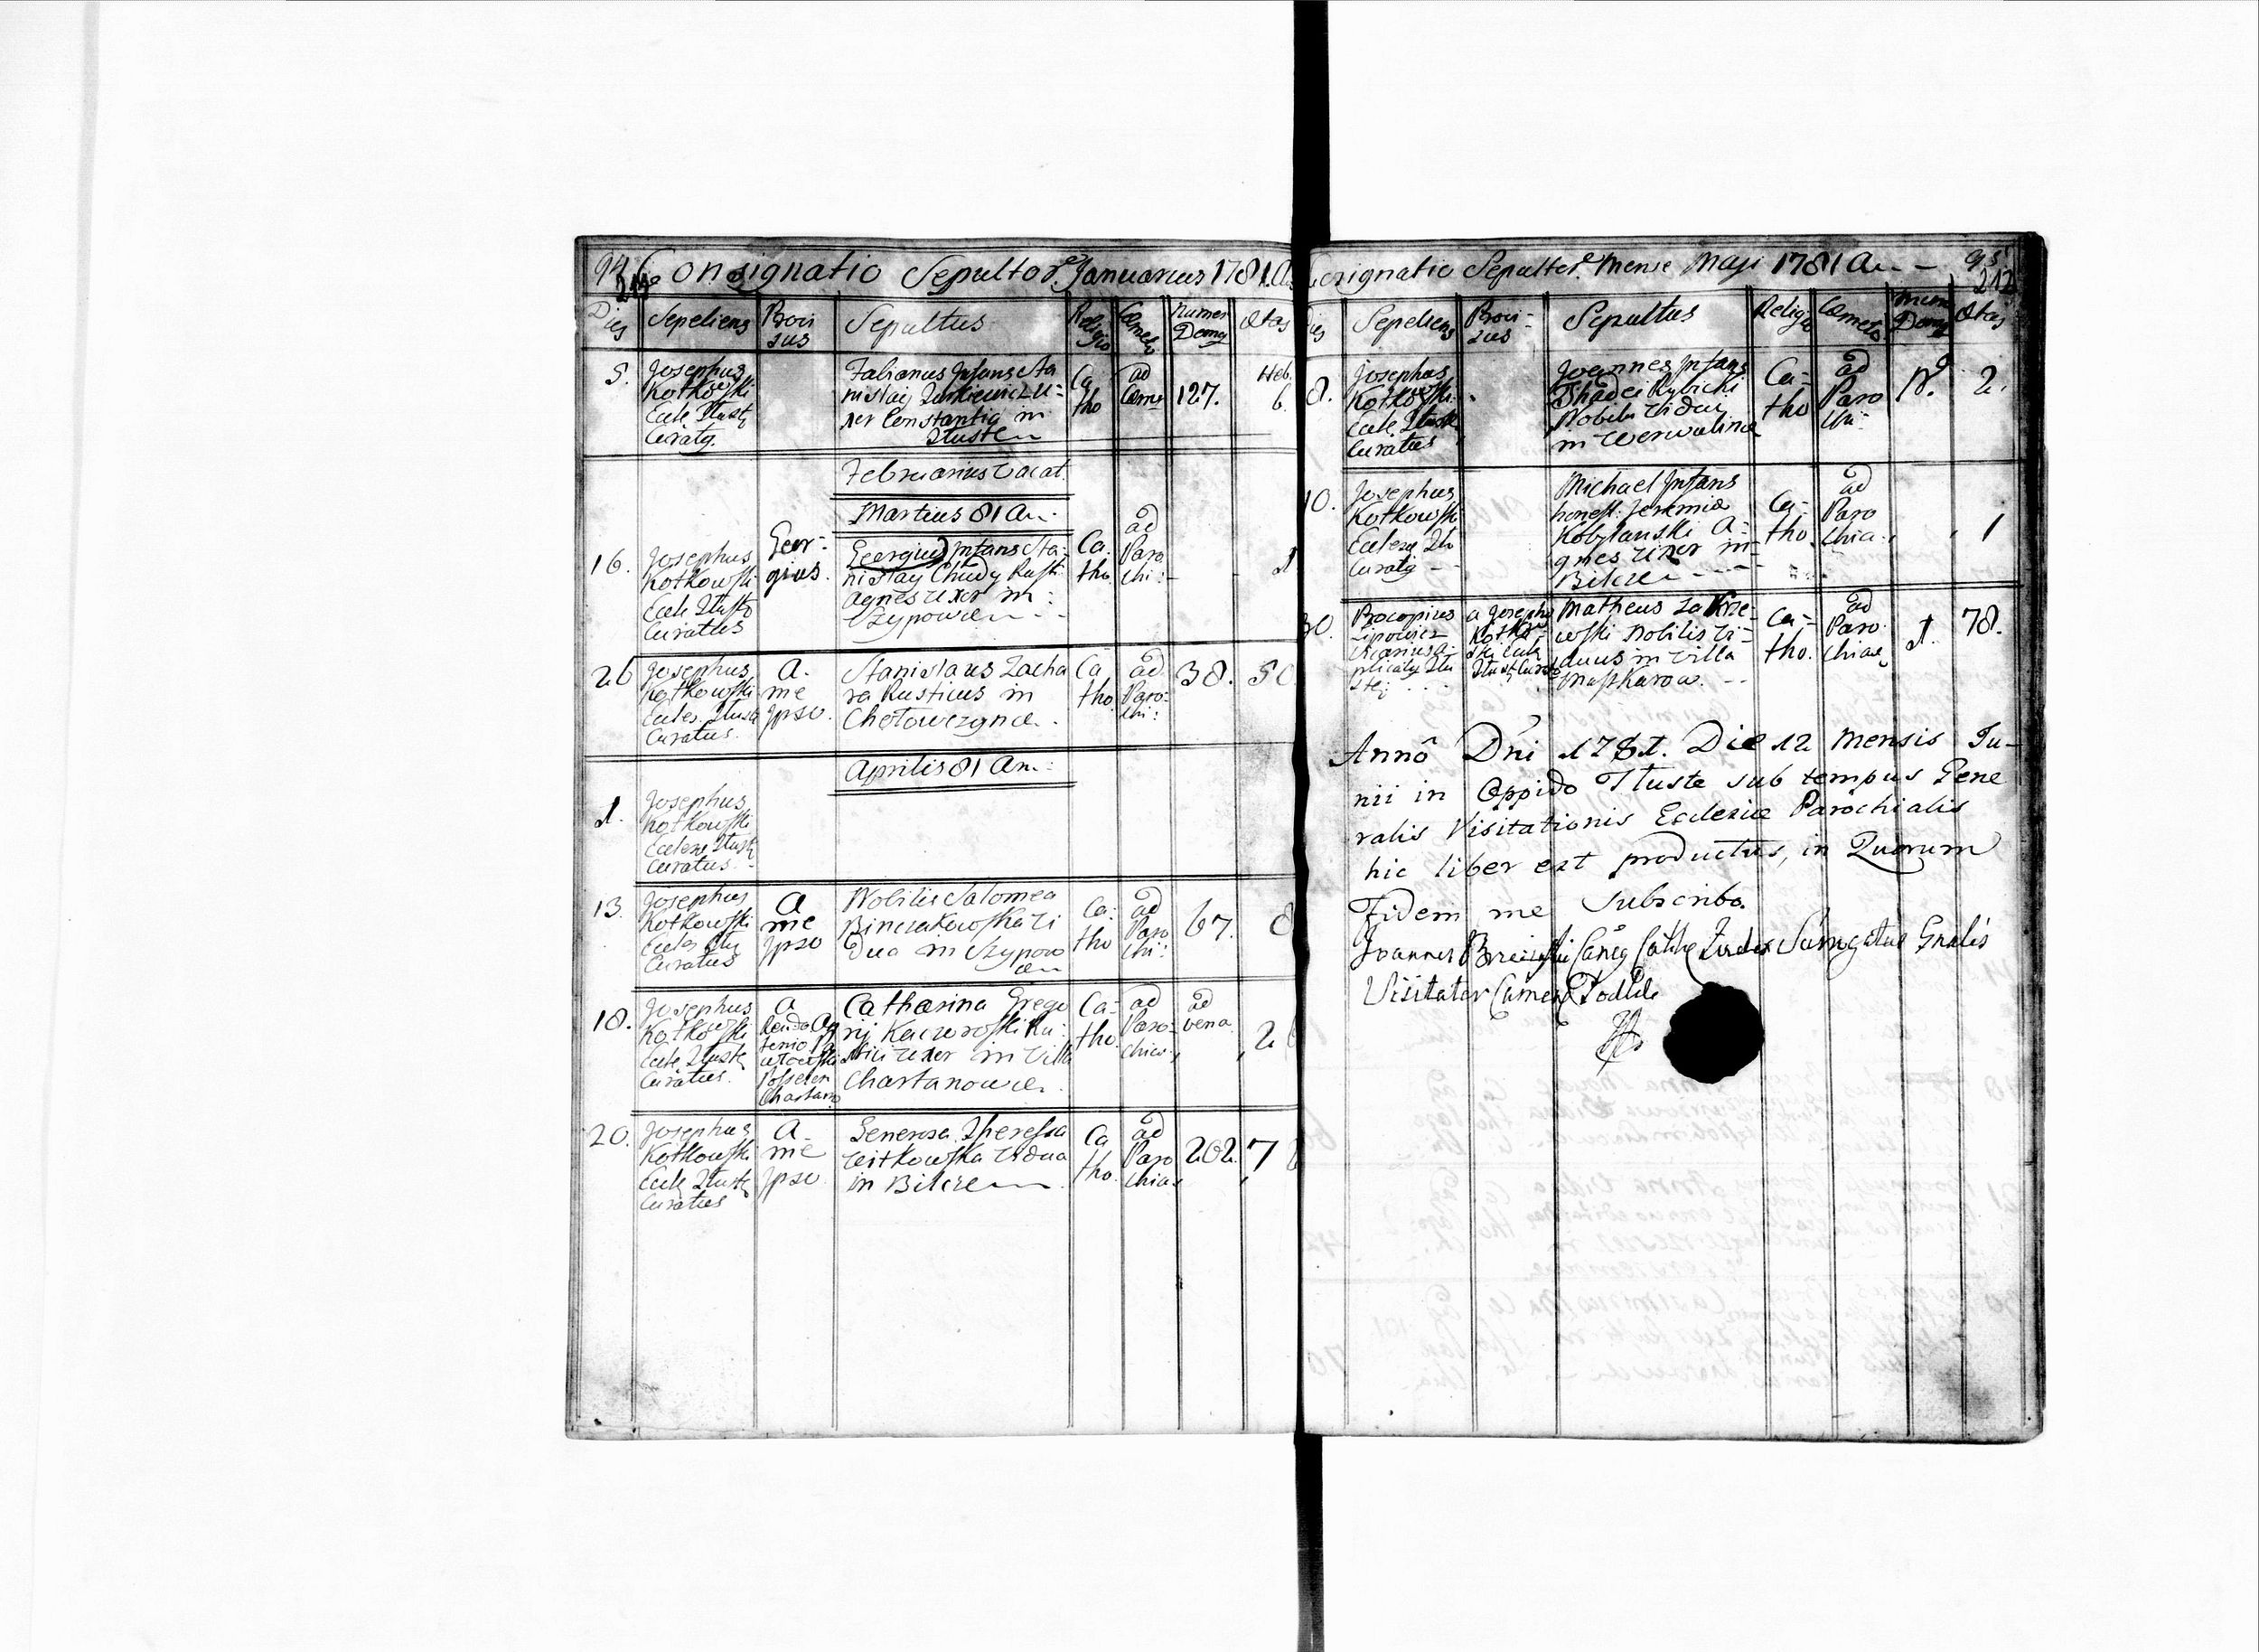 94 Consignatio Sepultor. Januarius 1781. A
Dies Sepeliens Provisus Sepultus Religio Cæmeto Numer Domg Ætas
5. Josephus Kotkowski Eccle. Tlust. Curatg.
Fabianus Infans Stanislai U=
xor Constantia in
Tluste
Ca tho
ad Cæme
127.
Heb. 6.
Februarius Vacat.
Martius 81 An:
16. Josephus
Kotkowski
Eccle Tlusto
Curatus
Geor=
gius.
Georgius Infans Sta=
nislay Chudy Rusti
Agnes uxor in:
Szypowce
Ca. tho.
ad Paro chi:
1
26 Josephus
Kotkowski
Eccles. Tlust
Curatus.
A.
me
Ipso.
Stanislaus Zacha
ra Rusticus in
Chotowczynce.
Ca tho.
ad Paro= chi:
38. 50
Aprilis 81 An:
1. Josephus
Kotkowski
Eccleze Tlust
Curatus.
13. Josephus
Kotkowski
Eccles Tlu
Curatus
A
me
Ipso
Nobilis Salomea
Binczakowska Vi
dua in Szypow
ce
Ca: tho
ad Paro chi:
67. 8
18. Josephus
Kotkowski
Eccle. Tlust
Curatus.
a
Possessor
Chartano
Catharina Grego
rij Kaczorofski Ru=
stici uxor in Villa
Chartanowce.
Ca= tho.
ad Paro= chia.
ad vena.
2
20. Josephus
Kotkowski
Eccle Tlust
Curatus
A.
me
Ipso
Generosa Theressa
Witkowska Vidua
in Bilcze
Ca tho.
ad Paro chia
202. 7
Consignatio Sepultor. Mense Maji 1781 An. 95
212
Dies Sepeliens Provisus Sepultus Religio Cæmeto Numer Domg Ætas
8. Josephus
Kotkowski
Eccle. Tlust
Curatus
Joannes Infans
Thadei Rybicki
Nobilis Vidui
in Worwolince
Ca= tho
ad Paro chi:
N. 2.
10. Josephus
Kotkowski
Eccleze Tlu
Curatg
Michael Infans
honest. Jeremiæ
Kobylanski A=
gnes uxor in
Bilcze
Ca= tho.
ad Paro chia.
1
30. Procopius
Lipowicz
a Josepho
Kotko=
ski Eccle
Tlust Curato
Matheus Zakrze=
wski Nobilis Vi=
duus in Villa
Muszkarow.
Ca= tho.
ad Paro. chiae
1. 78.
Annô Dni 1781. Die 12 Mensis Ju=
nii in Oppido Tluste sub tempus Gene
ralis Visitationis Ecclesiæ Parochialis
hic liber est productus, in Quorum
Fidem me Subscribo.
Joannes Canog Cathe Judex Surrogatus Gnalis
Visitator